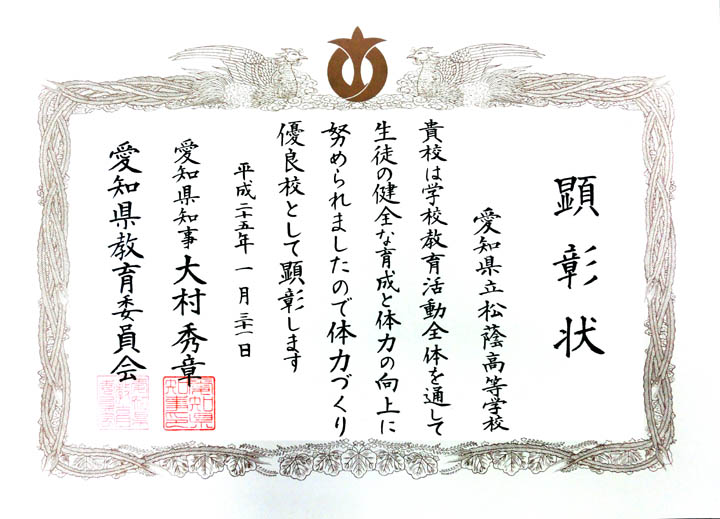 顕彰状
愛知県立松蔭高等学校
貴校は学校教育活動全体を通して
生徒の健全な育成と体力の向上に
努められましたので体力づくり
優良校として顕彰します
平成二十五年一月三十一日
愛知県知事大村秀章
愛知県教育委員会
愛知県
知事之印